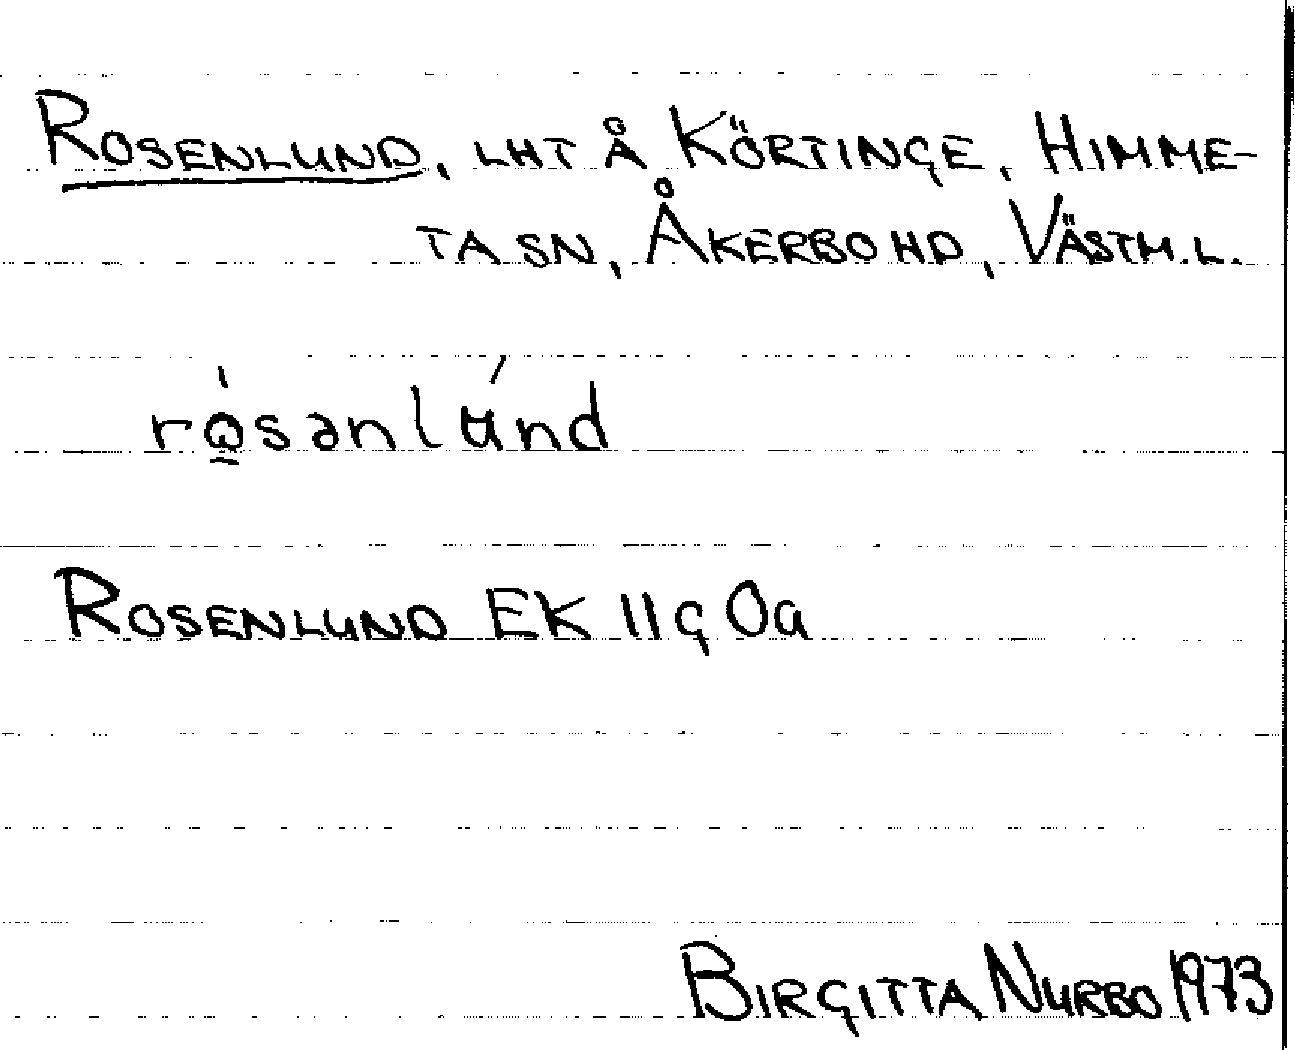 ROSENLUND, LHT Å KÖRTINGE, HIMME-
TA SN, ÅKERBO HD, VÄSTM.L.
rò̱sənlúnd
ROSENLUND EK 11g 0a
BIRGITTA NURBO 1973